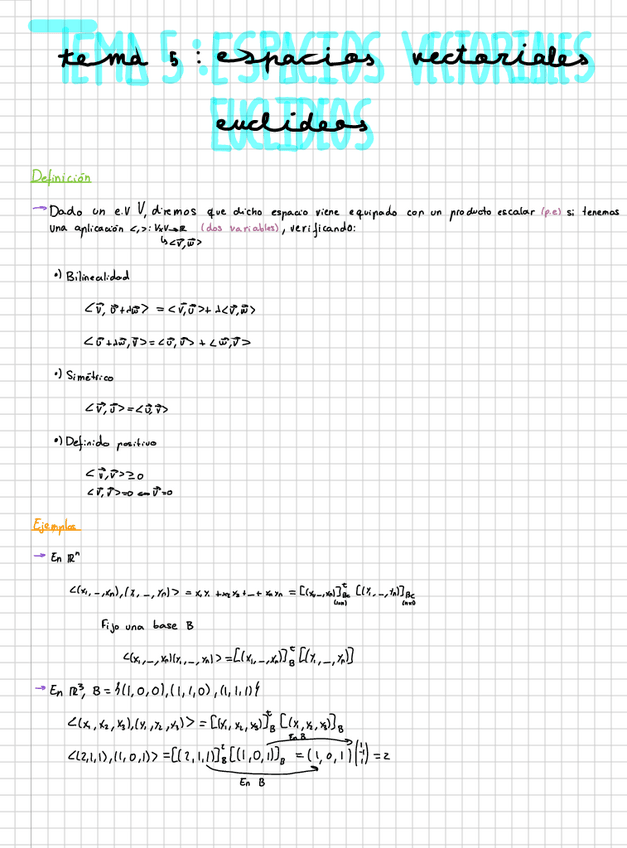 tema 5: espacios vectoriales
euclideos
Definición
→ Dado un e.v V, diremos que dicho espacio viene equipado con un producto escalar (p.e) si tenemos
una aplicación <,>: VxV→R (dos variables), verificando:
↳<v⃗,w⃗>
•) Bilinealidad
<v⃗, u⃗+λw⃗> = <v⃗,u⃗>+ λ<v⃗,w⃗>
<u⃗+λw⃗,v⃗>=<u⃗,v⃗> + <w⃗,v⃗>
•) Simétrico
<v⃗,u⃗>=<u⃗,v⃗>
•) Definido positivo
<v⃗,v⃗>≥0
<v⃗,v⃗>=0 ⟺ v⃗=0
Ejemplos
→ En Rⁿ
<(x₁,…,xₙ),(y₁,…,yₙ)> = x₁y₁+x₂y₂+…+xₙyₙ = [(x₁,…,xₙ)]ᵗ_Bc [(y₁,…,yₙ)]_Bc
(1xn) (nx1)
Fijo una base B
<(x₁,…,xₙ)(y₁,…,yₙ)> = [(x₁,…,xₙ)]ᵗ_B [(y₁,…,yₙ)]
→ En R³, B = {(1,0,0),(1,1,0),(1,1,1)}
<(x₁,x₂,x₃),(y₁,y₂,y₃)> = [(y₁,x₂,x₃)]ᵗ_B [(x₁,x₂,x₃)]_B
En B
<(2,1,1),(1,0,1)> = [(2,1,1)]ᵗ_B [(1,0,1)]_B = (1,0,1)(1 -1 1) = 2
En B